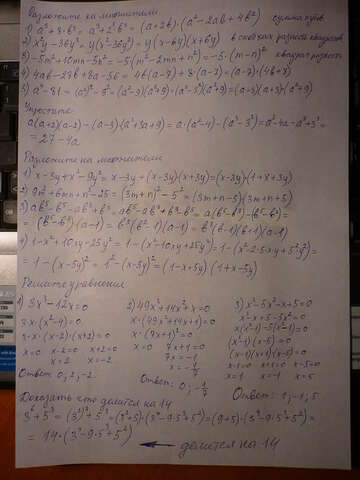 Разложите на множители
1) a³+8·b³ = a³+2³·b³ = (a+2b)·(a²-2ab+4b²) сумма кубов
2) x²y-36y³ = y(x²-36y²) = y(x-6y)(x+6y) в скобках разность квадратов
3) -5m²+10mn-5n² = -5(m²-2mn+n²) = -5·(m-n)² квадрат разности
4) 4ab-28b+8a-56 = 4b(a-7)+8·(a-7) = (a-7)·(4b+8)
5) a⁴-81 = (a²)²-9² = (a²-9)(a²+9) = (a²-3²)(a²+9) = (a-3)(a+3)(a²+9)
Упростите
a(a+2)(a-2)-(a-3)(a²+3a+9) = a·(a²-4)-(a³-3³) = a³-4a-a³+3³ =
= 27-4a
Разложите на множители
1) x-3y+x²-9y² = x-3y+(x-3y)(x+3y) = (x-3y)(1+x+3y)
2) 9m²+6mn+n²-25 = (3m+n)²-5² = (3m+n-5)(3m+n+5)
3) ab⁵-b⁵-ab³+b³ = ab⁵-ab³+b³-b⁵ = a(b⁵-b³)-(b⁵-b³) =
= (b⁵-b³)·(a-1) = b³(b²-1)(a-1) = b³(b-1)(b+1)(a-1)
4) 1-x²+10xy-25y² = 1-(x²-10xy+25y²) = 1-(x²-2·5·xy+5²y²) =
= 1-(x-5y)² = 1²-(x-5y)² = (1-x+5y)(1+x-5y)
Решите уравнения
1) 3x³-12x=0 2) 49x³+14x²+x=0 3) x³-5x²-x+5=0
3x·(x²-4)=0 x·(49x²+14x+1)=0 x³-x+5-5x²=0
3·x·(x-2)·(x+2)=0 x·(7x+1)²=0 x(x²-1)-5(x²-1)=0
x=0 x-2=0 x+2=0 x=0 7x+1=0 (x²-1)(x-5)=0
x=2 x=-2 7x=-1 (x-1)(x+1)(x-5)=0
x=-1/7 x-1=0 x+1=0 x-5=0
x=1 x=-1 x=5
Ответ: 0; 2; -2. Ответ: 0; -1/7 Ответ: 1; -1; 5
Доказать что делится на 14
3⁶+5³ = (3²)³+5³ = (3²+5)·(3⁴-9·5+5²) = (9+5)·(3⁴-9·5+5²) =
= 14·(3⁴-9·5+5²) делится на 14